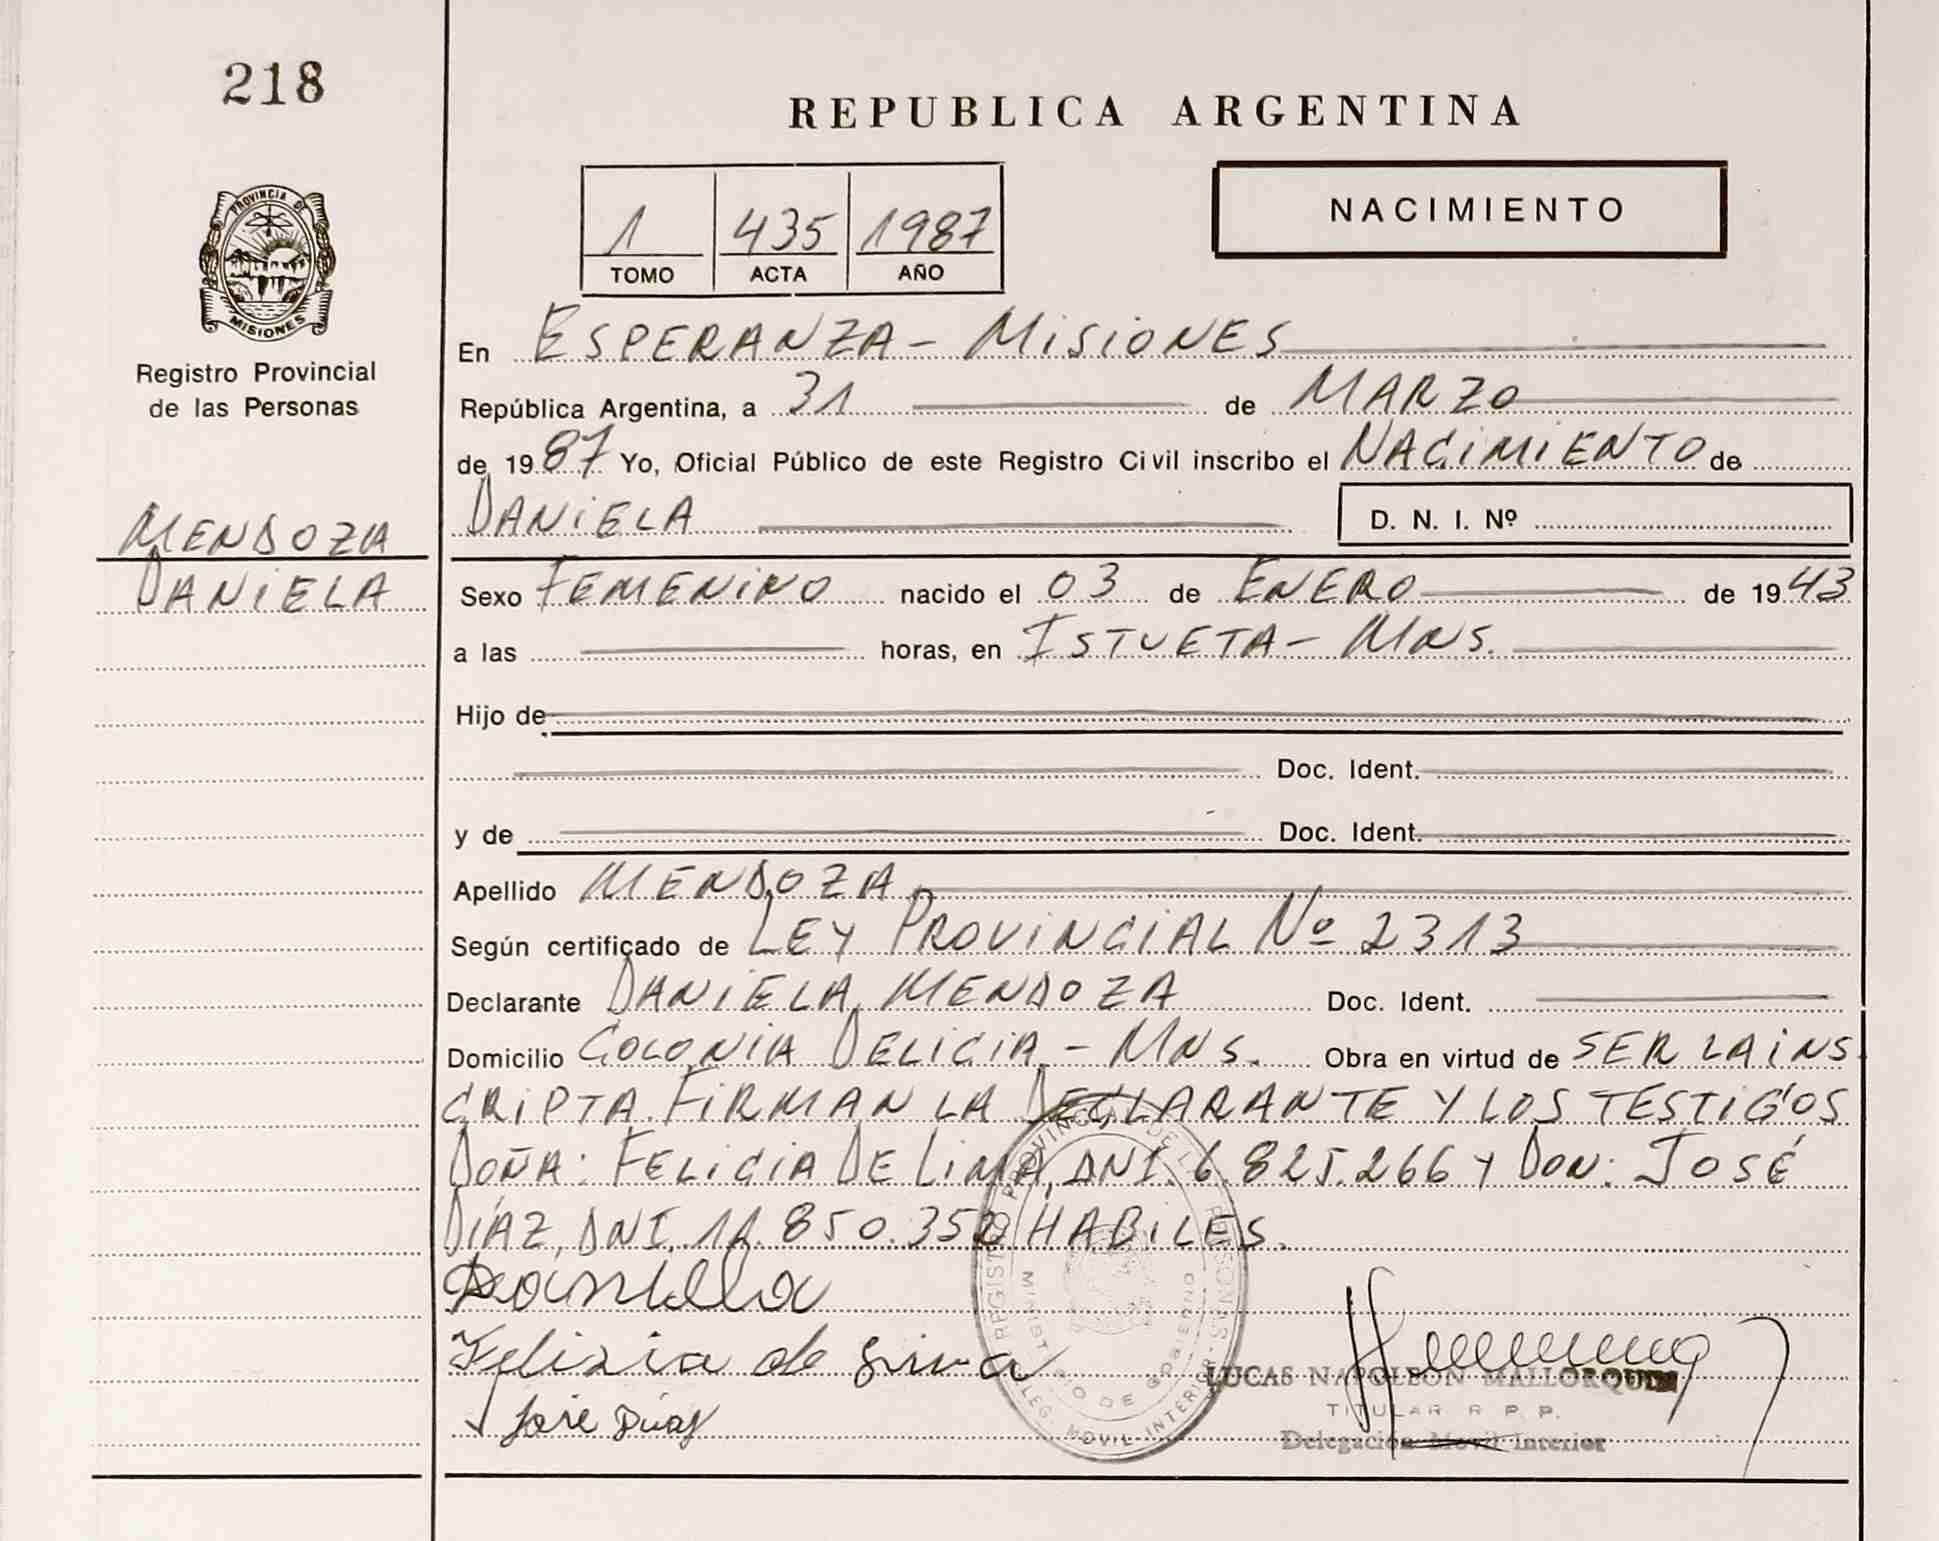 218
REPUBLICA ARGENTINA
PROVINCIA DE
MISIONES
Registro Provincial
de las Personas
1 435 1987
TOMO ACTA AÑO
NACIMIENTO
En ESPERANZA - MISIONES
República Argentina, a 31 de MARZO
de 1987 Yo, Oficial Público de este Registro Civil inscribo el NACIMIENTO de
DANIELA
D. N. I. Nº
MENDOZA
DANIELA
Sexo FEMENINO nacido el 03 de ENERO de 1943
a las horas, en ISTUETA - MNS.
Hijo de
Doc. Ident.
y de Doc. Ident.
Apellido MENDOZA
Según certificado de LEY PROVINCIAL Nº 2313
Declarante DANIELA MENDOZA Doc. Ident.
Domicilio COLONIA DELICIA - MNS. Obra en virtud de SER LA INS
CRIPTA. FIRMAN LA DECLARANTE Y LOS TESTIGOS
DOÑA: FELICIA DE LIMA, DNI. 6.825.266 Y DON: JOSÉ
DÍAZ, DNI. 850.352 HABILES.
Felizia de
José Díaz
REGISTRO PROVINCIAL DE LAS PERSONAS
MINISTERIO DE GOBIERNO
DELEG. MOVIL INTERIOR
LUCAS NAPOLEON MALLORQUIN
TITULAR R. P. P.
Delegación Movil Interior